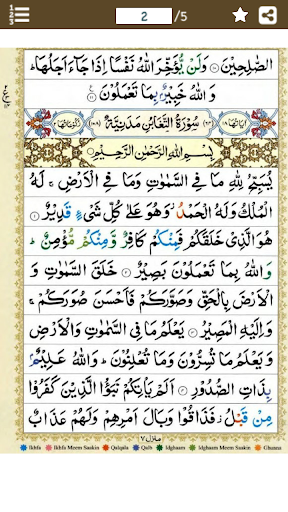 2 /5
الصّٰلِحِيْنَ ۝ وَلَنْ يُّؤَخِّرَ اللّٰهُ نَفْسًا اِذَا جَآءَ اَجَلُهَا ؕ
وَاللّٰهُ خَبِيْرٌۢ بِمَا تَعْمَلُوْنَ ۝
سُوْرَةُ التَّغَابُنِ مَدَنِيَّةٌ
بِسْمِ اللّٰهِ الرَّحْمٰنِ الرَّحِيْمِ
يُسَبِّحُ لِلّٰهِ مَا فِى السَّمٰوٰتِ وَمَا فِى الْاَرْضِ ۚ لَهُ
الْمُلْكُ وَلَهُ الْحَمْدُ ؗ وَهُوَ عَلٰى كُلِّ شَىْءٍ قَدِيْرٌ ۝
هُوَ الَّذِىْ خَلَقَكُمْ فَمِنْكُمْ كَافِرٌ وَّمِنْكُمْ مُّؤْمِنٌ ؕ
وَاللّٰهُ بِمَا تَعْمَلُوْنَ بَصِيْرٌ ۝ خَلَقَ السَّمٰوٰتِ وَ
الْاَرْضَ بِالْحَقِّ وَصَوَّرَكُمْ فَاَحْسَنَ صُوَرَكُمْ ۚ
وَاِلَيْهِ الْمَصِيْرُ ۝ يَعْلَمُ مَا فِى السَّمٰوٰتِ وَالْاَرْضِ
وَيَعْلَمُ مَا تُسِرُّوْنَ وَمَا تُعْلِنُوْنَ ؕ وَاللّٰهُ عَلِيْمٌۢ
بِذَاتِ الصُّدُوْرِ ۝ اَلَمْ يَاْتِكُمْ نَبَؤُا الَّذِيْنَ كَفَرُوْا
مِنْ قَبْلُ ؗ فَذَاقُوْا وَبَالَ اَمْرِهِمْ وَلَهُمْ عَذَابٌ
منزل ٧
Ikhfa Ikhfa Meem Saakin Qalqala Qalb Idghaam Idghaam Meem Saakin Ghunna